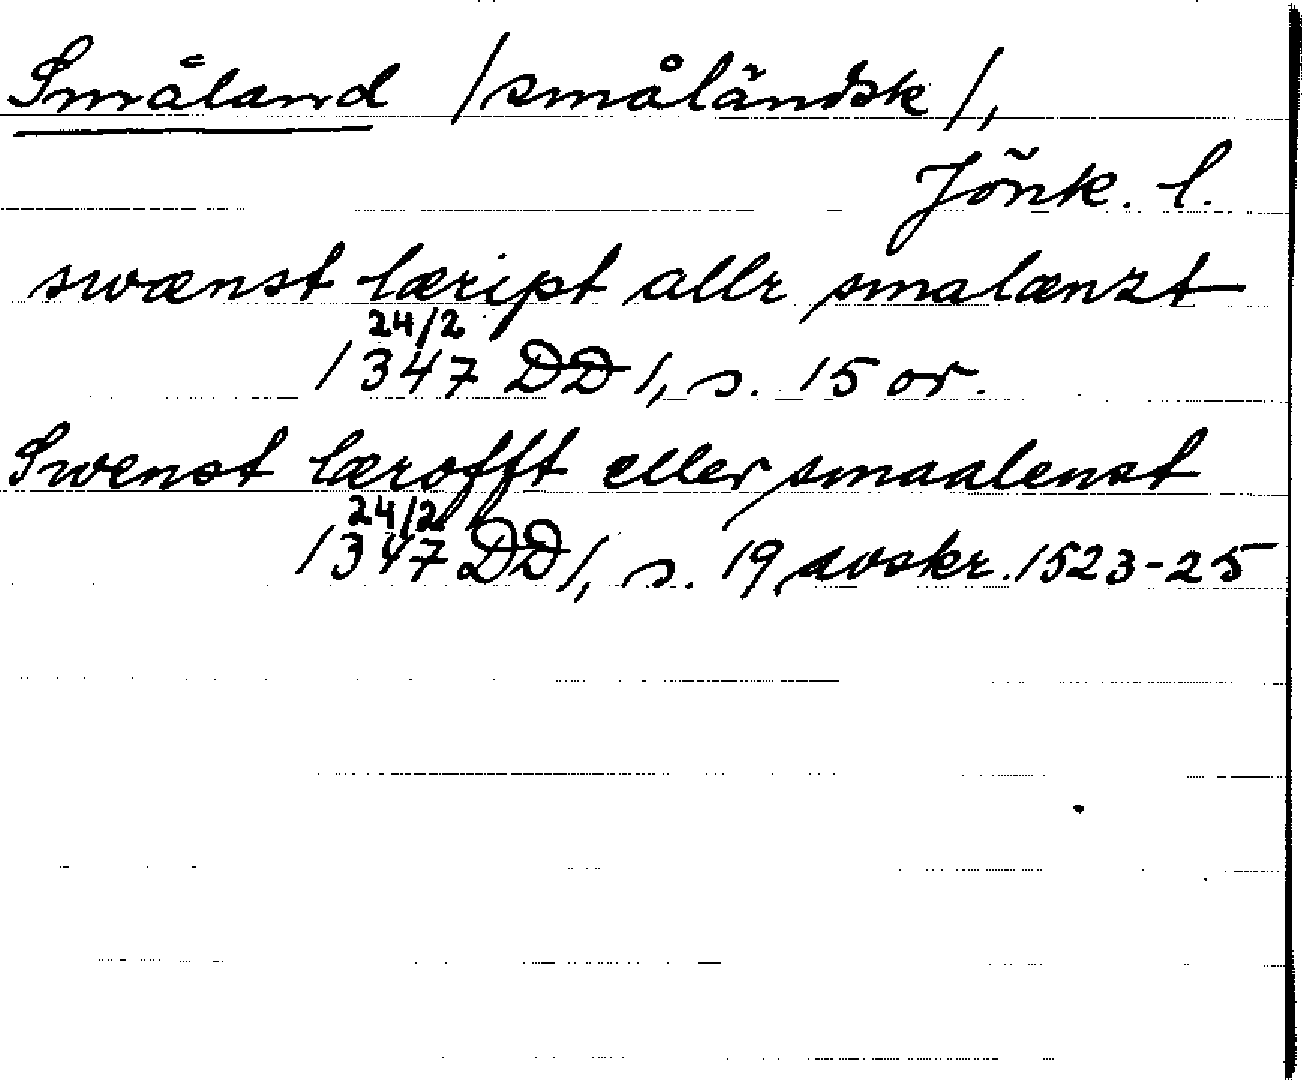 Småland /småländsk/,
Jönk. l.
swænst læript allr smalænzt
24/2
1347 DD 1, s. 15 or.
Swenst lærofft eller smaalenst
24/2
1347 DD 1, s. 19 avskr. 1523-25